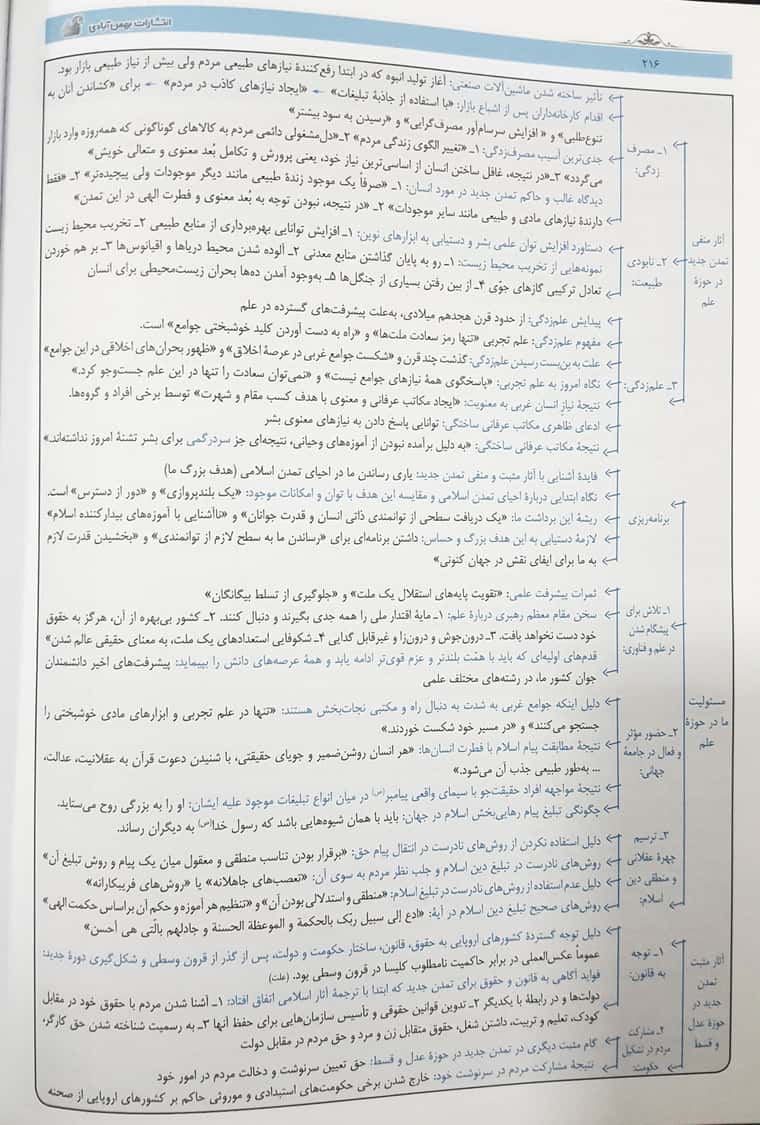 انتشارات بهمن‌آبادی
۲۱۶
آثار منفی تمدن جدید در حوزهٔ علم
۱ـ مصرف زدگی:
تأثیر ساخته شدن ماشین‌آلات صنعتی: آغاز تولید انبوه که در ابتدا رفع‌کنندهٔ نیازهای طبیعی مردم ولی بیش از نیاز طبیعی بازار بود.
اقدام کارخانه‌داران پس از اشباع بازار: «با استفاده از جاذبهٔ تبلیغات» ← «ایجاد نیازهای کاذب در مردم» ← برای «کشاندن آنان به
تنوع‌طلبی» و « افزایش سرسام‌آور مصرف‌گرایی» و «رسیدن به سود بیشتر»
جدی‌ترین آسیب مصرف‌زدگی: ۱ـ «تغییر الگوی زندگی مردم» ۲ـ «دل‌مشغولی دائمی مردم به کالاهای گوناگونی که همه‌روزه وارد بازار
می‌گردد» ۳ـ «در نتیجه، غافل ساختن انسان از اساسی‌ترین نیاز خود، یعنی پرورش و تکامل بُعد معنوی و متعالی خویش»
دیدگاه غالب و حاکم تمدن جدید در مورد انسان: ۱ـ «صرفاً یک موجود زندهٔ طبیعی مانند دیگر موجودات ولی پیچیده‌تر» ۲ـ «فقط
دارندهٔ نیازهای مادی و طبیعی مانند سایر موجودات» ۲ـ «در نتیجه، نبودن توجه به بُعد معنوی و فطرت الهی در این تمدن»
۲ـ نابودی طبیعت:
دستاورد افزایش توان علمی بشر و دستیابی به ابزارهای نوین: ۱ـ افزایش توانایی بهره‌برداری از منابع طبیعی ۲ـ تخریب محیط زیست
نمونه‌هایی از تخریب محیط زیست: ۱ـ رو به پایان گذاشتن منابع معدنی ۲ـ آلوده شدن محیط دریاها و اقیانوس‌ها ۳ـ بر هم خوردن
تعادل ترکیبی گازهای جوّی ۴ـ از بین رفتن بسیاری از جنگل‌ها ۵ـ به‌وجود آمدن ده‌ها بحران زیست‌محیطی برای انسان
۳ـ علم‌زدگی:
پیدایش علم‌زدگی: از حدود قرن هجدهم میلادی، به‌علت پیشرفت‌های گسترده در علم
مفهوم علم‌زدگی: علم تجربی «تنها رمز سعادت ملت‌ها» و «راه به دست آوردن کلید خوشبختی جوامع» است.
علت به بن‌بست رسیدن علم‌زدگی: گذشت چند قرن و «شکست جوامع غربی در عرصهٔ اخلاق» و «ظهور بحران‌های اخلاقی در این جوامع»
نگاه امروز به علم تجربی: «پاسخگوی همهٔ نیازهای جوامع نیست» و «نمی‌توان سعادت را تنها در این علم جست‌وجو کرد.»
نتیجهٔ نیاز انسان غربی به معنویت: «ایجاد مکاتب عرفانی و معنوی با هدف کسب مقام و شهرت» توسط برخی افراد و گروه‌ها.
ادعای ظاهری مکاتب عرفانی ساختگی: توانایی پاسخ دادن به نیازهای معنوی بشر
نتیجهٔ مکاتب عرفانی ساختگی: «به دلیل برآمده نبودن از آموزه‌های وحیانی، نتیجه‌ای جز سردرگمی برای بشر تشنهٔ امروز نداشته‌اند.»
مسئولیت ما در حوزهٔ علم
برنامه‌ریزی
فایدهٔ آشنایی با آثار مثبت و منفی تمدن جدید: یاری رساندن ما در احیای تمدن اسلامی (هدف بزرگ ما)
نگاه ابتدایی دربارهٔ احیای تمدن اسلامی و مقایسه این هدف با توان و امکانات موجود: «یک بلندپروازی» و «دور از دسترس» است.
ریشهٔ این برداشت ما: «یک دریافت سطحی از توانمندی ذاتی انسان و قدرت جوانان» و «ناآشنایی با آموزه‌های بیدارکننده اسلام»
لازمهٔ دستیابی به این هدف بزرگ و حساس: داشتن برنامه‌ای برای «رساندن ما به سطح لازم از توانمندی» و «بخشیدن قدرت لازم
به ما برای ایفای نقش در جهان کنونی»
۱ـ تلاش برای پیشگام شدن در علم و فناوری:
ثمرات پیشرفت علمی: «تقویت پایه‌های استقلال یک ملت» و «جلوگیری از تسلط بیگانگان»
سخن مقام معظم رهبری دربارهٔ علم: ۱ـ مایهٔ اقتدار ملی را همه جدی بگیرند و دنبال کنند. ۲ـ کشور بی‌بهره از آن، هرگز به حقوق
خود دست نخواهد یافت. ۳ـ درون‌جوش و درون‌زا و غیرقابل گدایی ۴ـ شکوفایی استعدادهای یک ملت، به معنای حقیقی عالم شدن»
قدم‌های اولیه‌ای که باید با همّت بلندتر و عزم قوی‌تر ادامه یابد و همهٔ عرصه‌های دانش را بپیماید: پیشرفت‌های اخیر دانشمندان
جوان کشور ما، در رشته‌های مختلف علمی
۲ـ حضور مؤثر و فعال در جامعهٔ جهانی:
دلیل اینکه جوامع غربی به شدت به دنبال راه و مکتبی نجات‌بخش هستند: «تنها در علم تجربی و ابزارهای مادی خوشبختی را
جستجو می‌کنند» و «در مسیر خود شکست خوردند.»
نتیجهٔ مطابقت پیام اسلام با فطرت انسان‌ها: «هر انسان روشن‌ضمیر و جویای حقیقتی، با شنیدن دعوت قرآن به عقلانیت، عدالت،
... به‌طور طبیعی جذب آن می‌شود.»
نتیجهٔ مواجهه افراد حقیقت‌جو با سیمای واقعی پیامبر(ص) در میان انواع تبلیغات موجود علیه ایشان: او را به بزرگی روح می‌ستاید.
چگونگی تبلیغ پیام رهایی‌بخش اسلام در جهان: باید با همان شیوه‌هایی باشد که رسول خدا(ص) به دیگران رساند.
۳ـ ترسیم چهرهٔ عقلانی و منطقی دین اسلام:
دلیل استفاده نکردن از روش‌های نادرست در انتقال پیام حق: «برقرار بودن تناسب منطقی و معقول میان یک پیام و روش تبلیغ آن»
روش‌های نادرست در تبلیغ دین اسلام و جلب نظر مردم به سوی آن: «تعصب‌های جاهلانه» یا «روش‌های فریبکارانه»
دلیل عدم استفاده از روش‌های نادرست در تبلیغ اسلام: «منطقی و استدلالی بودن آن» و «تنظیم هر آموزه و حکم آن براساس حکمت الهی»
روش‌های صحیح تبلیغ دین اسلام در آیهٔ: «ادع إلی سبیل ربّک بالحکمة و الموعظة الحسنة و جادلهم بالّتی هی أحسن»
آثار مثبت تمدن جدید در حوزهٔ عدل و قسط
۱ـ توجه به قانون:
دلیل توجه گستردهٔ کشورهای اروپایی به حقوق، قانون، ساختار حکومت و دولت، پس از گذر از قرون وسطی و شکل‌گیری دورهٔ جدید:
عموماً عکس‌العملی در برابر حاکمیت نامطلوب کلیسا در قرون وسطی بود. (علت)
فواید آگاهی به قانون و حقوق برای تمدن جدید که ابتدا با ترجمهٔ آثار اسلامی اتفاق افتاد: ۱ـ آشنا شدن مردم با حقوق خود در مقابل
دولت‌ها و در رابطهٔ با یکدیگر ۲ـ تدوین قوانین حقوقی و تأسیس سازمان‌هایی برای حفظ آنها ۳ـ به رسمیت شناخته شدن حق کارگر،
کودک، تعلیم و تربیت، داشتن شغل، حقوق متقابل زن و مرد و حق مردم در مقابل دولت
۲ـ مشارکت مردم در تشکیل حکومت:
گام مثبت دیگری در تمدن جدید در حوزهٔ عدل و قسط: حق تعیین سرنوشت و دخالت مردم در امور خود
نتیجهٔ مشارکت مردم در سرنوشت خود: خارج شدن برخی حکومت‌های استبدادی و موروثی حاکم بر کشورهای اروپایی از صحنه